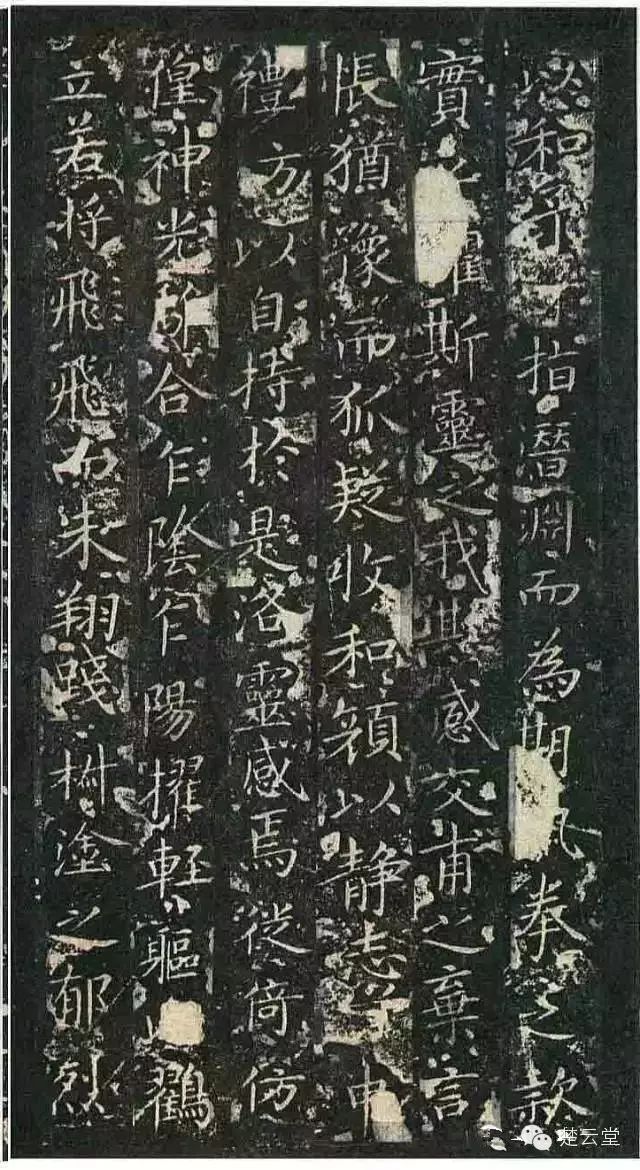 和予兮指潛淵而為期執拳之款
實懼斯靈之我其感交甫之棄言
悵猶豫而狐疑收和顏以静志兮申
禮方以自持於是洛靈感焉徙倚仿
偟神光離合乍陰乍陽擢軽軀以鸖
立若将飛飛而未翔踐椒塗之郁烈
楚云堂